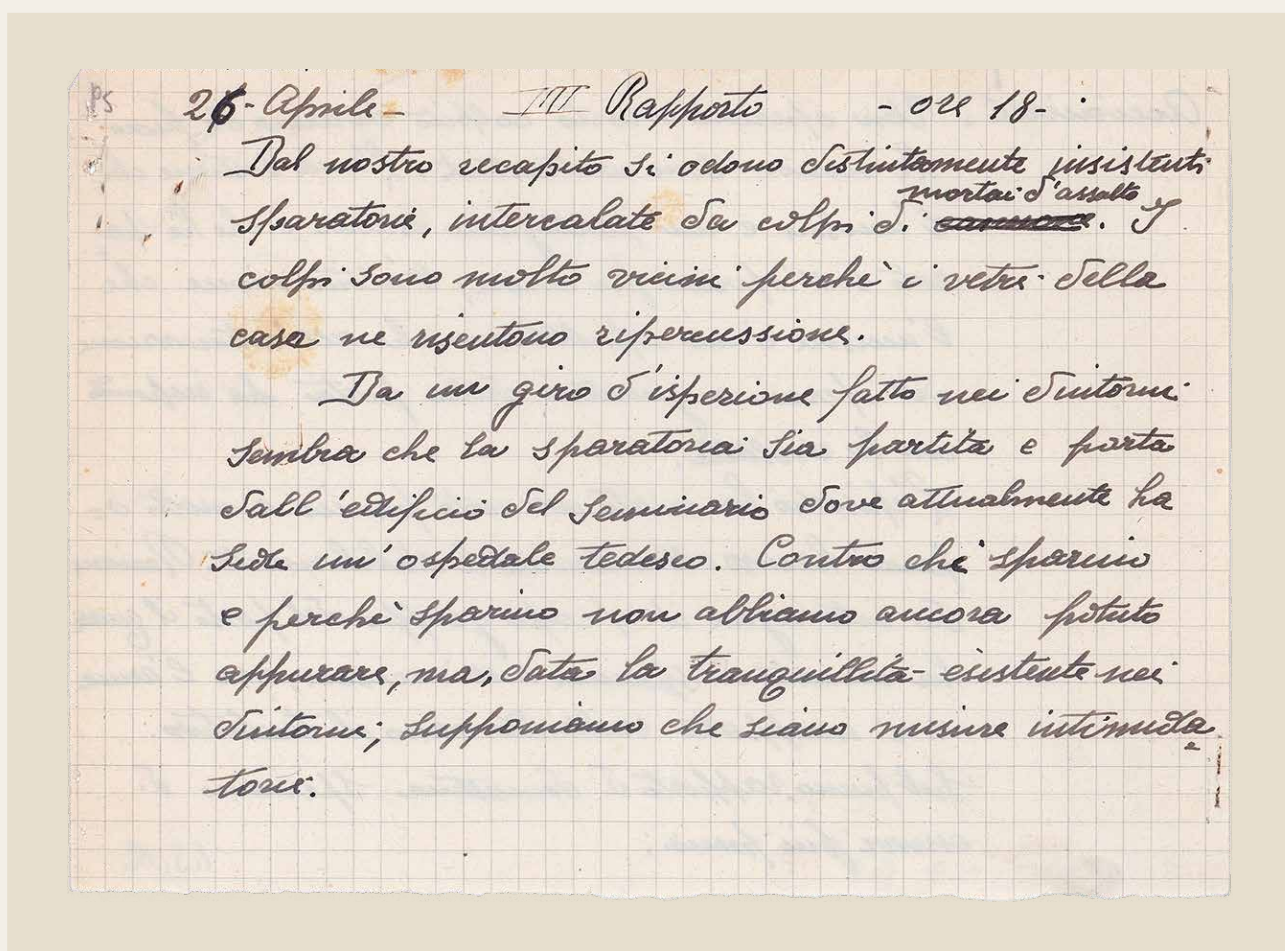 P5 26 - Aprile - III Rapporto - ore 18 -
Dal nostro recapito si odono distintamente insistenti
mortai d'assalto
sparatorie, intercalate da colpi di cannone. I
colpi sono molto vicini perchè i vetri della
casa ne risentono ripercussione.
Da un giro d'ispezione fatto nei dintorni
sembra che la sparatoria sia partita e parta
dall'edificio del Seminario dove attualmente ha
sede un'ospedale tedesco. Contro chi sparino
e perchè sparino non abbiamo ancora potuto
appurare, ma, data la tranquillità esistente nei
dintorni; supponiamo che siano misure intimida
torie.